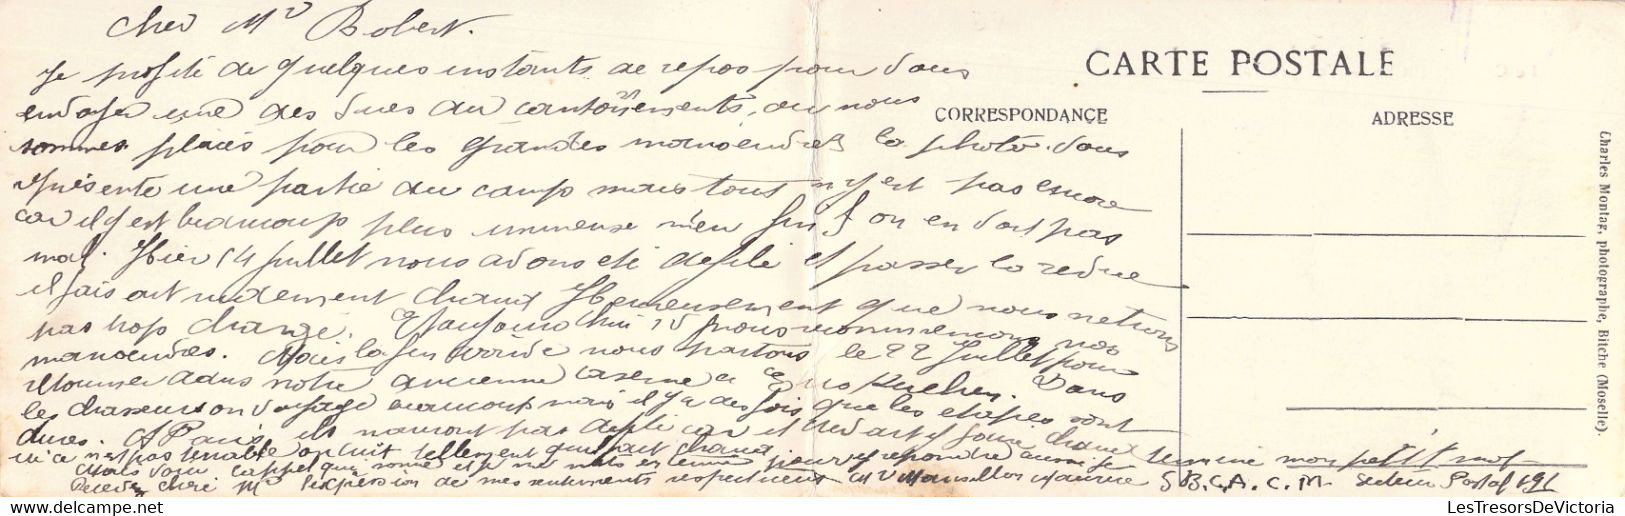 Cher Mr Robert.
Je profite de quelques instants de repos pour vous
envoyer une des vues du cantonnements, ou nous
sommes placés pour les grandes manoeuvres la photo. vous
présente une partie du camp mais tout n'y est pas encore
car il y est beaucoup plus immense on en voit pas
mal. Hier 14 juillet nous avons été defilé et passer la revue
il fais ait rudement chaud Heureusement que nous n'etions
pas trop chargé. Aujourd'hui 15 nous recommencerons nos
manoeuvres. Mais la fin arrive nous partons le 22 Juillet pour
retourner dans notre ancienne caserne a Dans
les chasseurs on voyage beaucoup mais il y a des fois que les etapes sont
dures. A Paris ils n'auront pas defilé car il faire chaud
ici ce n'est pas tenable on cuit tellement qu'il fait chaud
Mais l'appel que sonne et je me mets en termine mon petit mot
Recevez cher Mr l'expression de mes sentiments respectueux Maurice S B.C.A.C.M. secteur Postal
CARTE POSTALE
CORRESPONDANCE
ADRESSE
Charles Montag, photographe, Bitche (Moselle).
LesTresorsDeVictoria